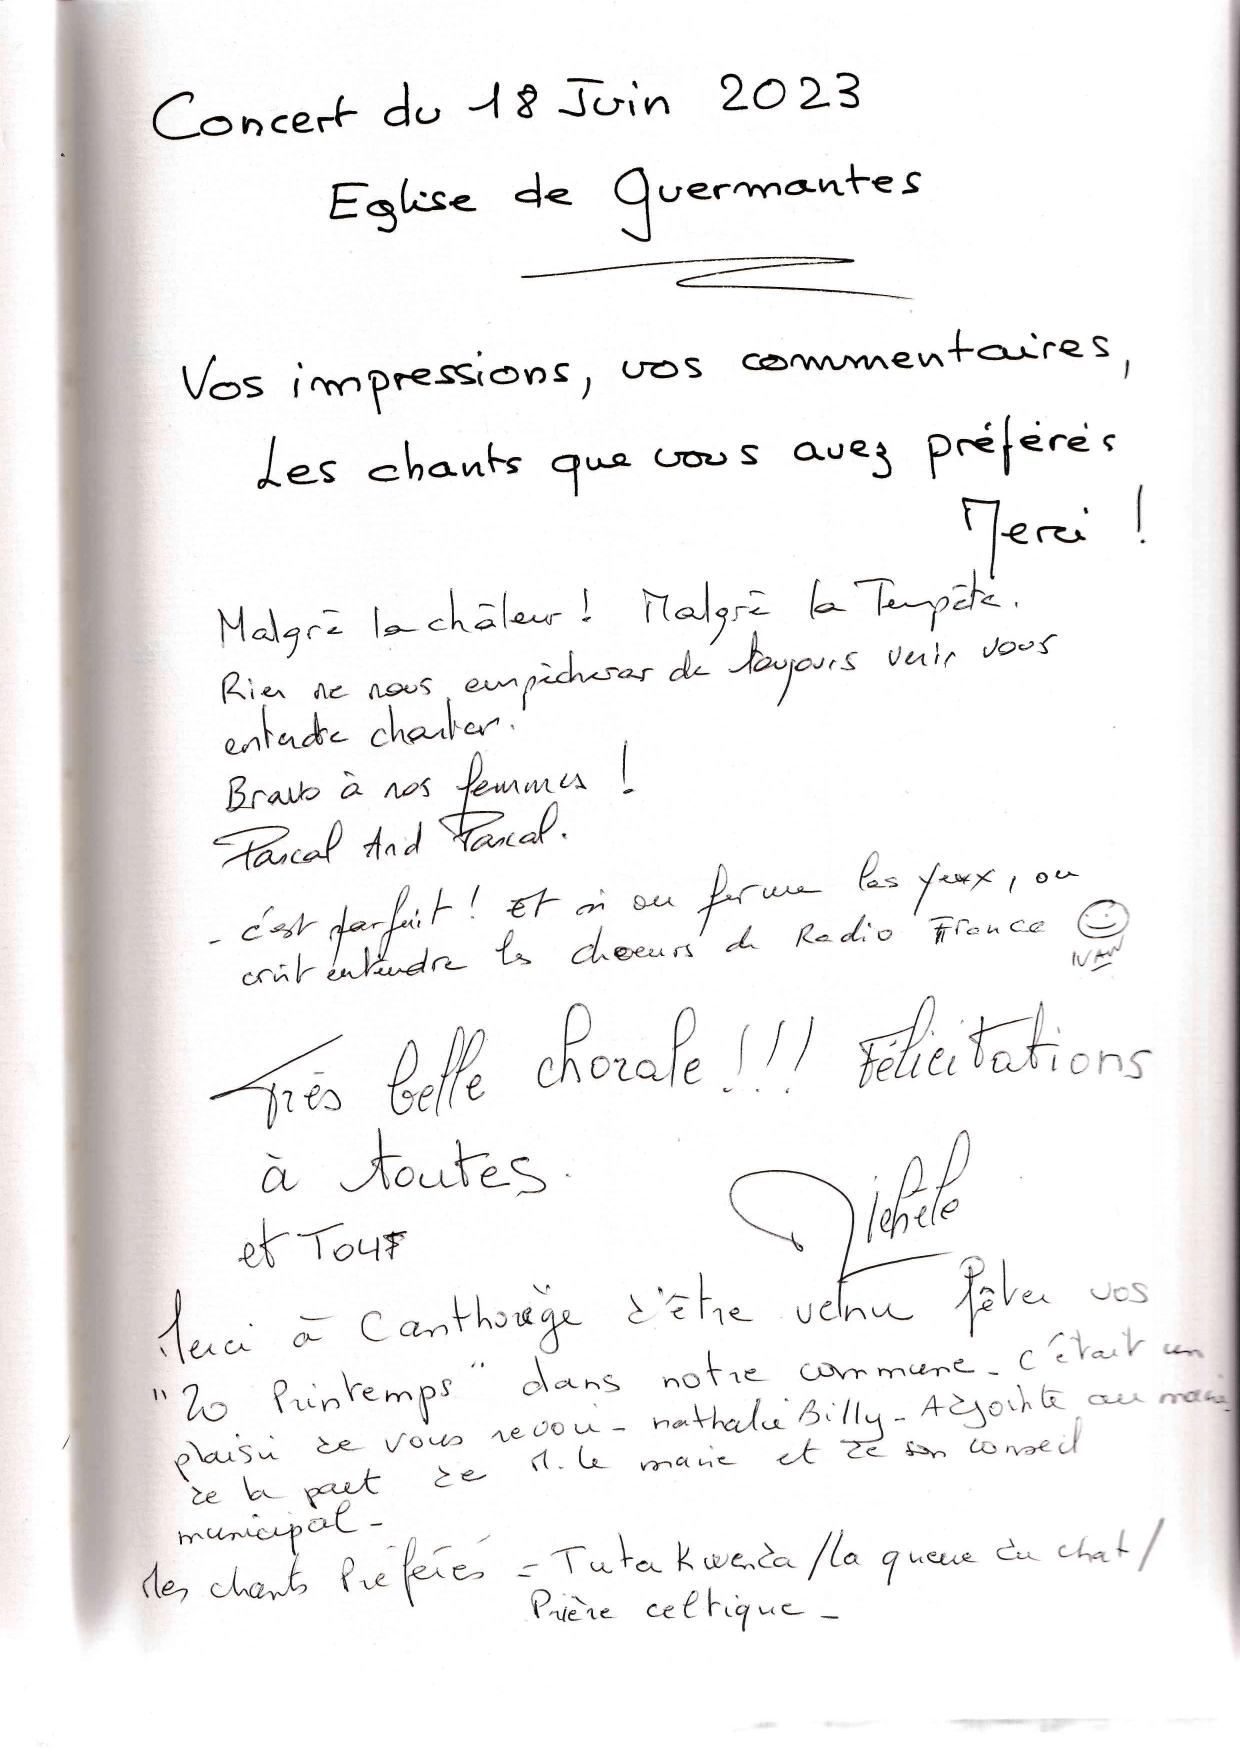 Concert du 18 Juin 2023
Eglise de Guermantes
Vos impressions, vos commentaires,
Les chants que vous avez préférés
Merci !
Malgré la châleur ! Malgré la Tempête.
Rien ne nous empècheras de toujours venir vous
entendre chanter.
Bravo à nos femmes !
Pascal And Pascal.
- c'est parfait ! Et si on ferme les yeux, on
croit entendre les choeurs de Radio France
IVAN
Très belle chorale !!! Félicitations
à toutes.
et Tous
Michèle
Merci à Canthorège d'être venu fêter vos
"20 Printemps" dans notre commune - C'était un
plaisir de vous revoir - nathalie Billy - Adjointe au maire
de la part de M. le maire et de son conseil
municipal -
Mes chants Préférés = Tuta Kwenda / la queue du chat /
Prière celtique -